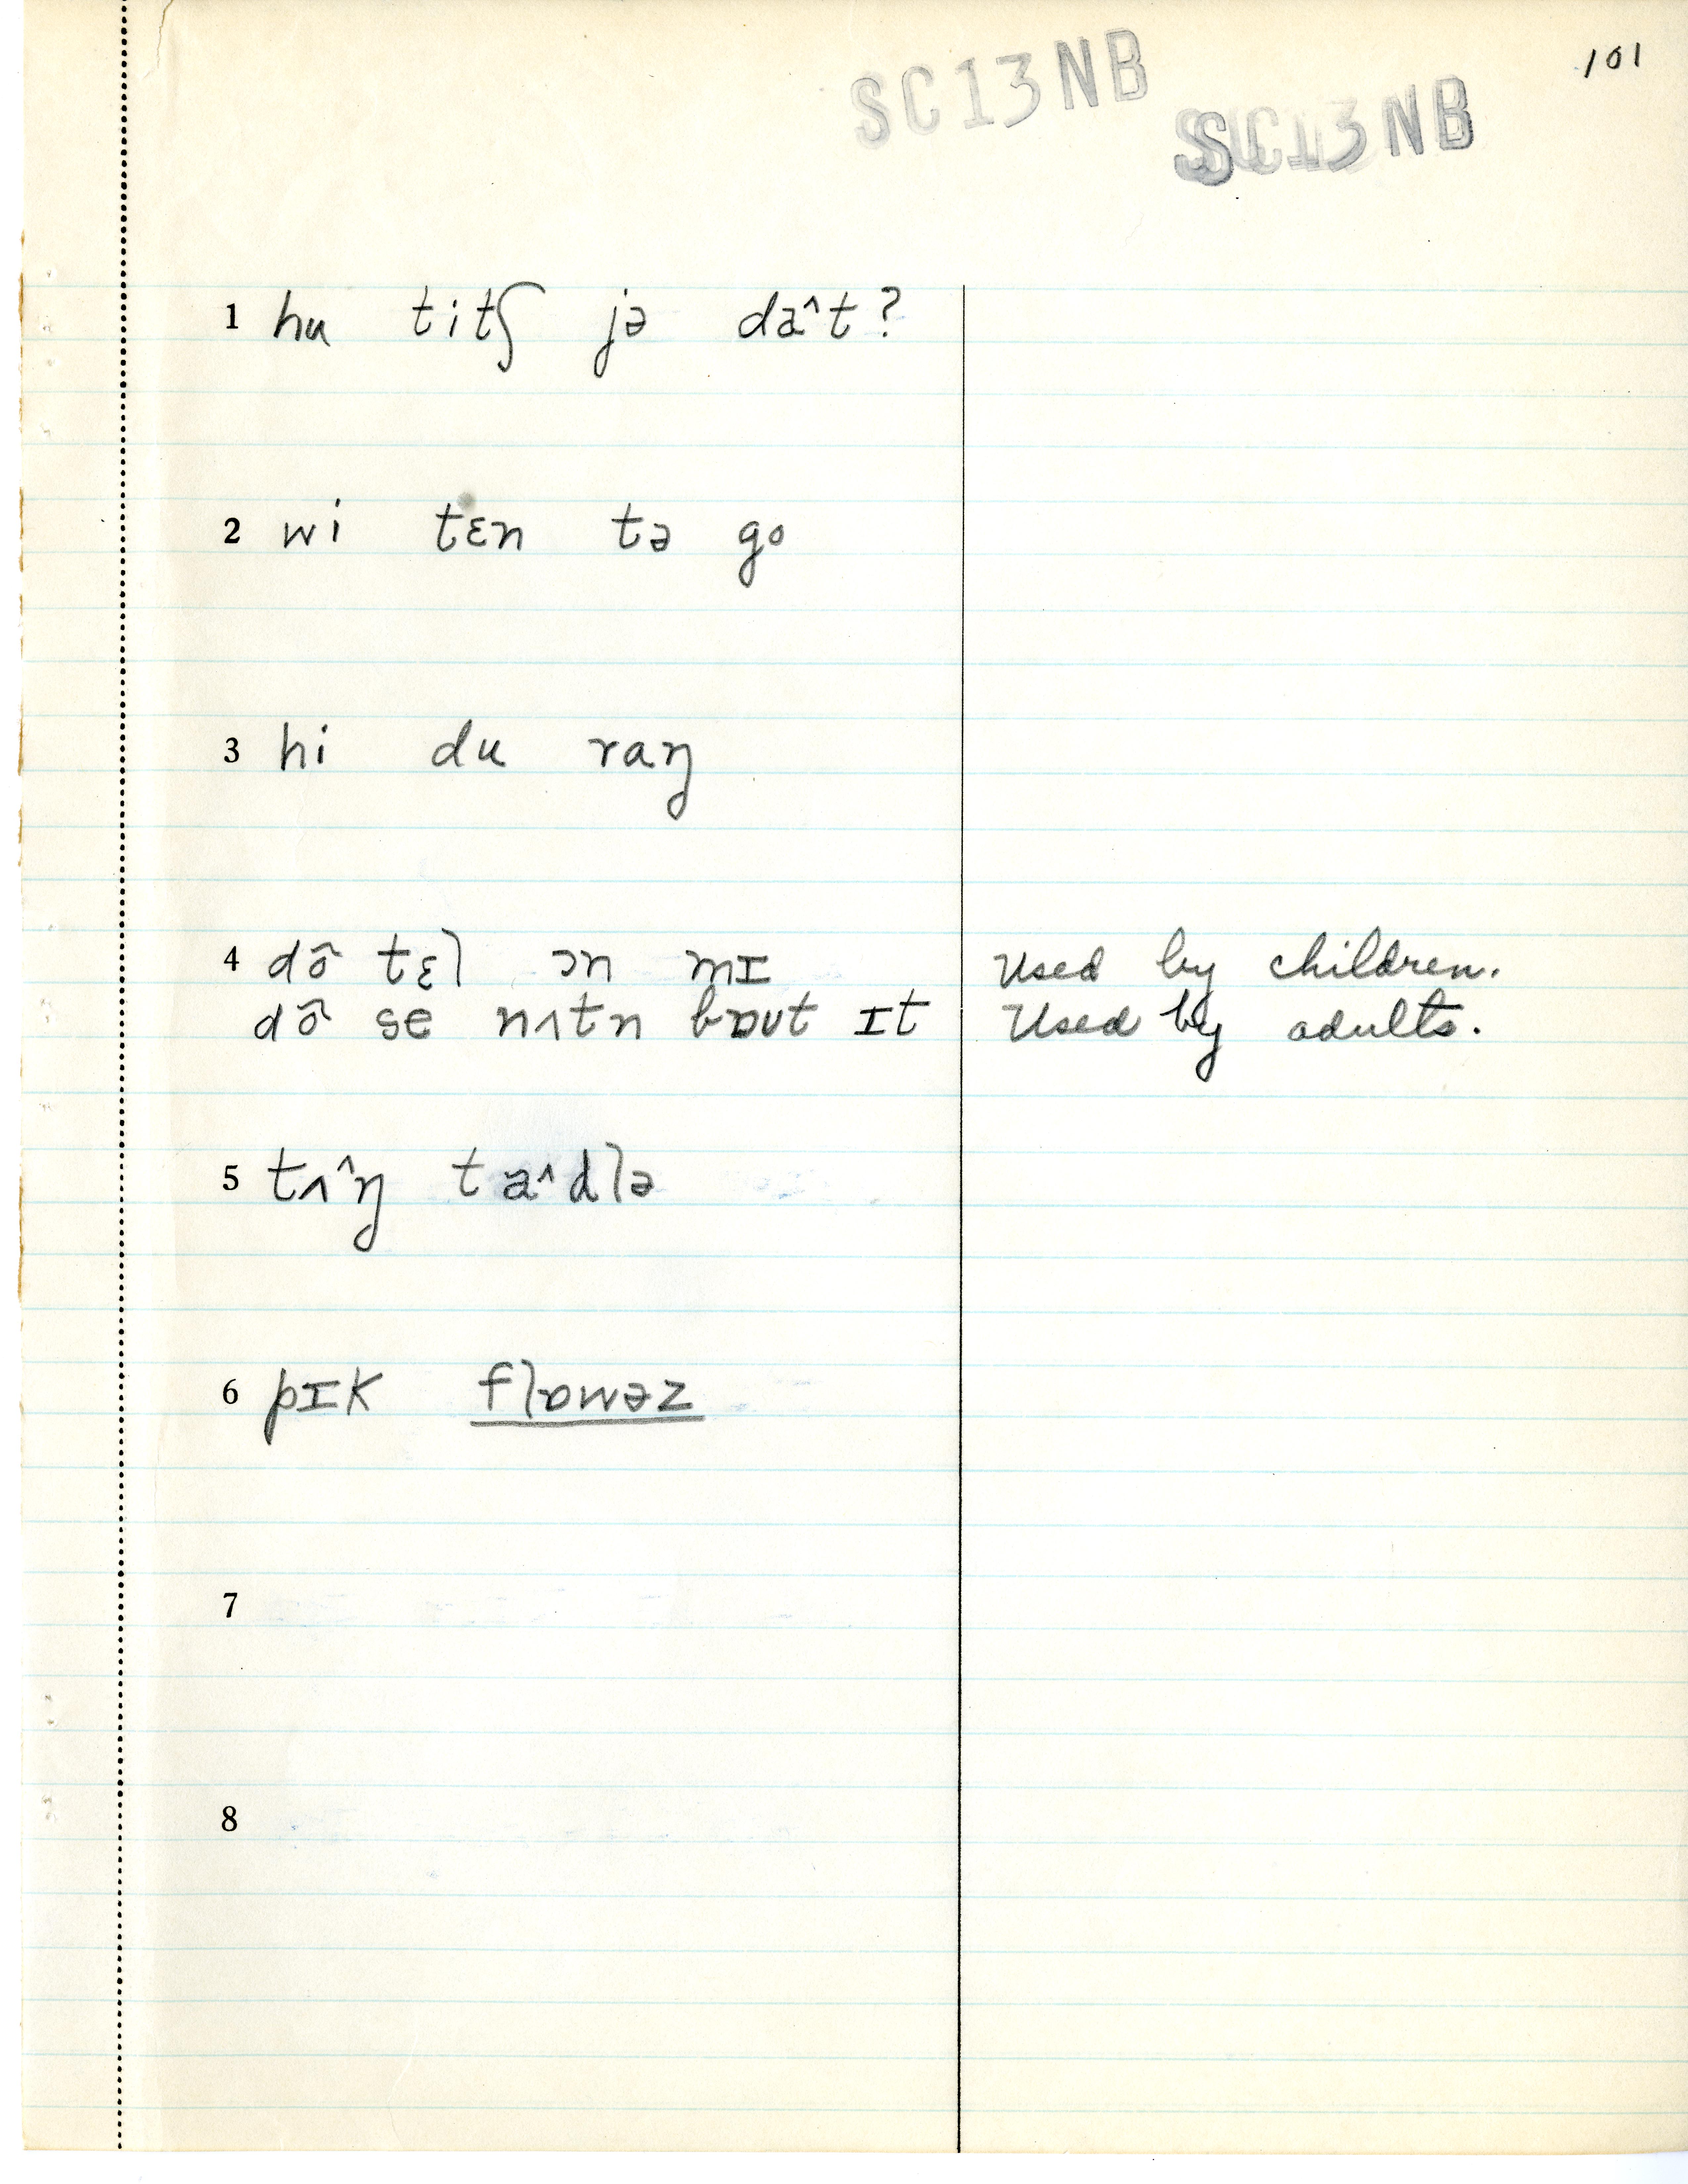 101
SC13NB
SC13NB
1 hu titʃ jə da^t?
2 wi tɛn tə go
3 hi du raŋ
4 dõ tɛl ɔn mɪ Used by children.
dõ se nʌtn bɒut ɪt Used by adults.
5 tʌ^ŋ ta^dlə
6 pɪk flɒwəz
7
8